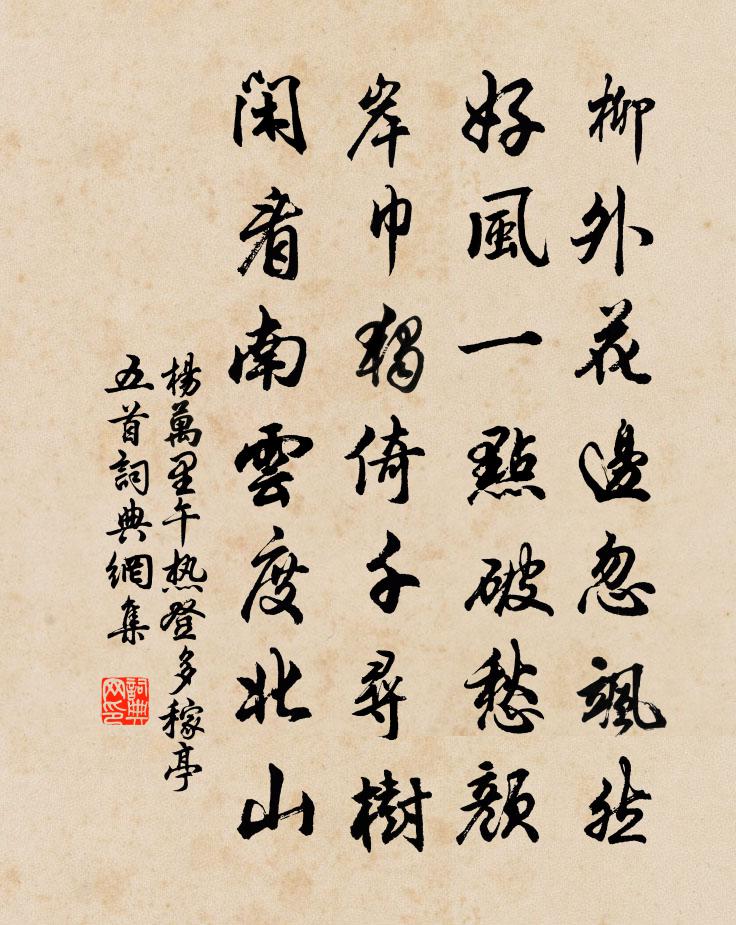 柳外花邊忽颯然
好風一點破愁顏
岸巾獨倚千尋樹
閑看南雲度北山
楊萬里午热登多稼亭
五首詞典網集
詞典
网印